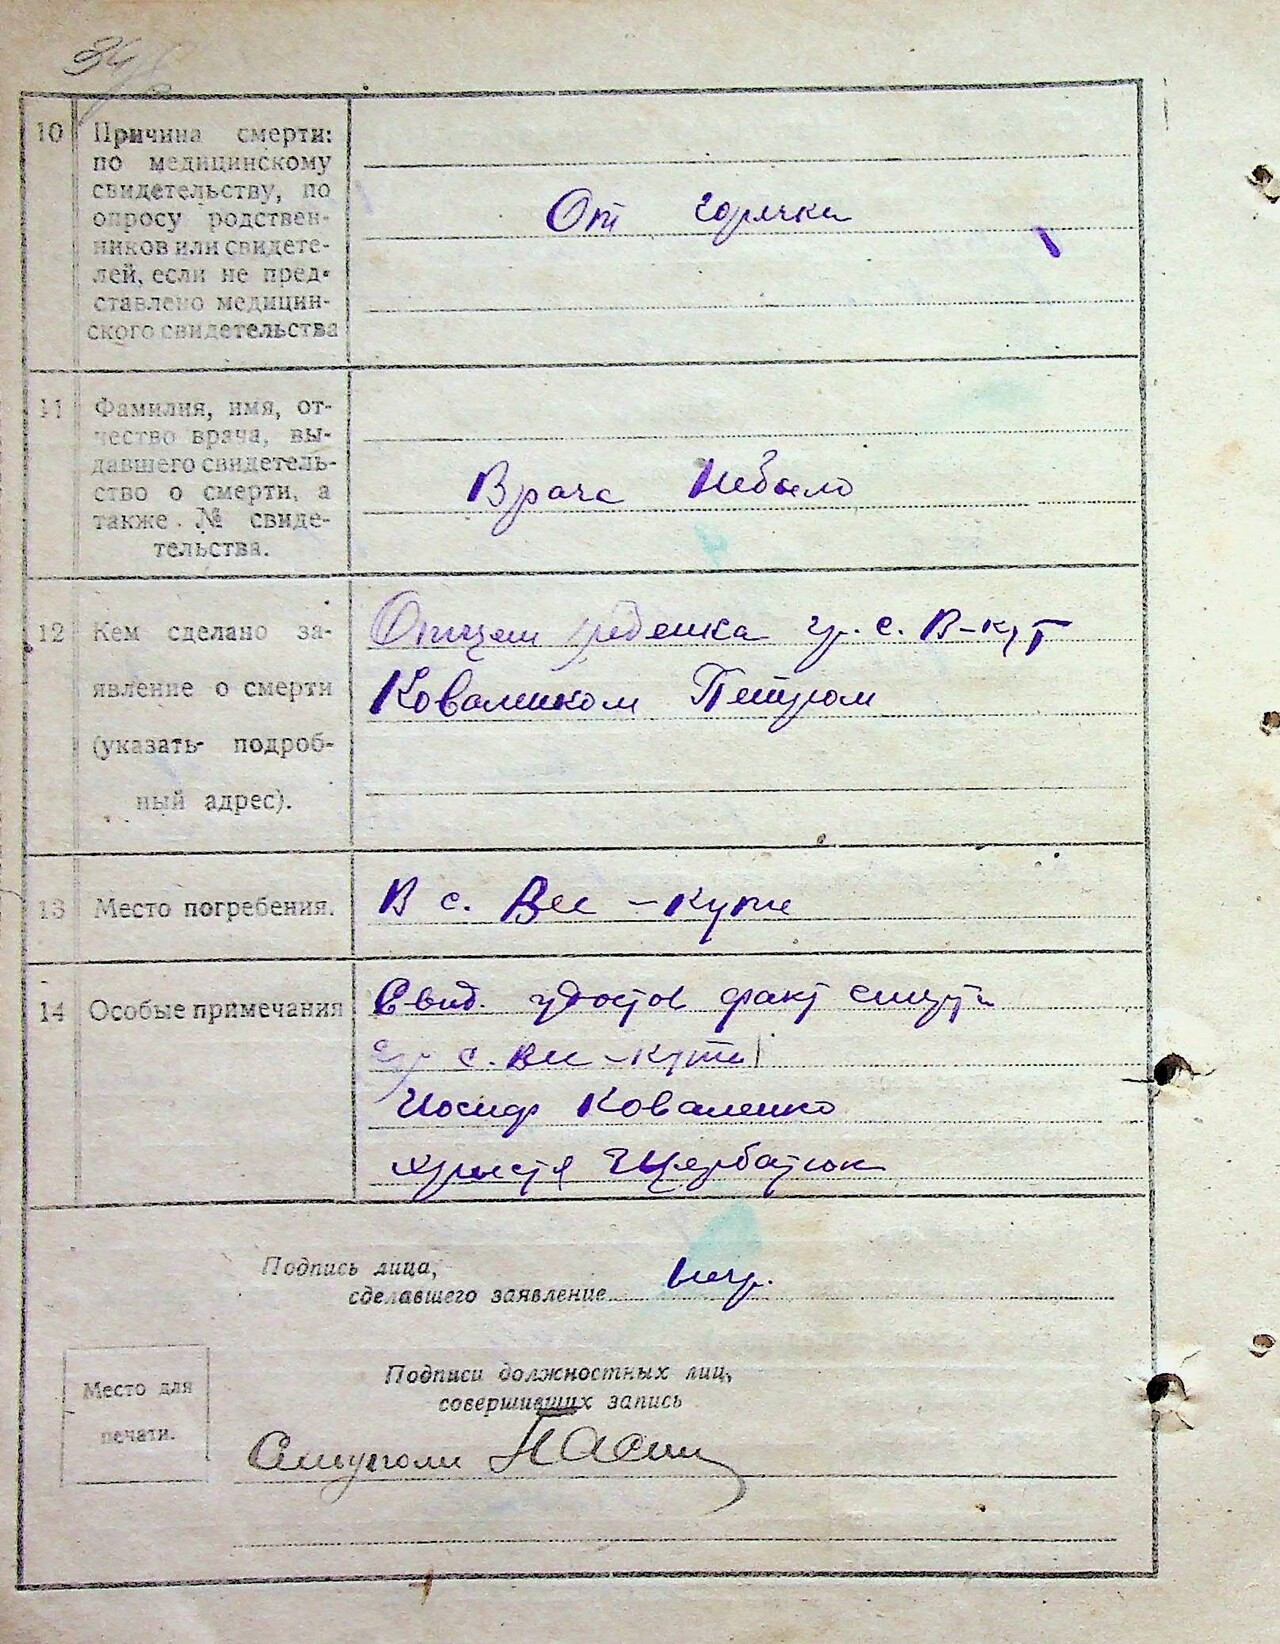 10
Причина смерти:
по медицинскому
свидетельству, по
опросу родствен-
ников или свидете-
лей, если не пред-
ставлено медицин-
ского свидетельства
От горячки
11
Фамилия, имя, от-
чество врача, вы-
давшего свидетель-
ство о смерти, а
также № свиде-
тельства.
Врача небыло
12
Кем сделано за-
явление о смерти
(указать подроб-
ный адрес).
Отцем ребенка гр. с. В-Кут
Ковалиском Петром
13
Место погребения.
В с. Вел-Куте
14
Особые примечания
Свид. удостов факт смерти
гр с. Вел-Кути
Иосиф Коваленко
Христя Щербатюк
Подпись лица,
сделавшего заявление
негр.
Место для
печати.
Подписи должностных лиц,
совершивших запись